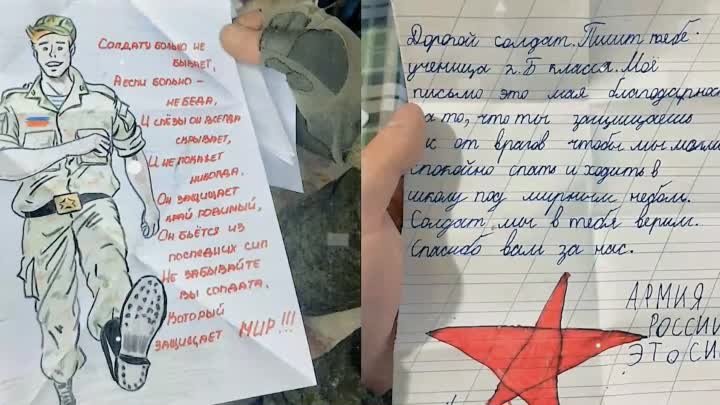 Солдату больно не
бывает,
А если больно –
не беда,
И слёзы он всегда
скрывает,
И не покажет
никогда.
Он защищает
край родимый,
Он бьётся из
последних сил
Не забывайте
вы солдата,
Который
защищает МИР!!!
Дорогой солдат. Пишит тебе
ученица 2.Б класса. Моё
письмо это мая благодарнос
а то, что ты защищаешь
с от врагов чтобы мы могли
спокойно спать и ходить в
школу под мирным небом.
Солдат, мы в тебя верим.
Спасибо вам за нас.
АРМИЯ
РОССИИ
ЭТО СИ